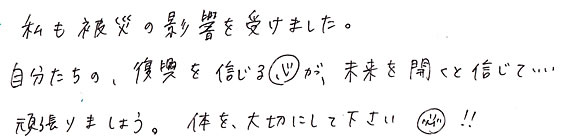 私も被災の影響を受けました。
自分たちの、復興を信じる心が、未来を開くと信じて‥‥
頑張りましょう。 体を、大切にして下さい !!